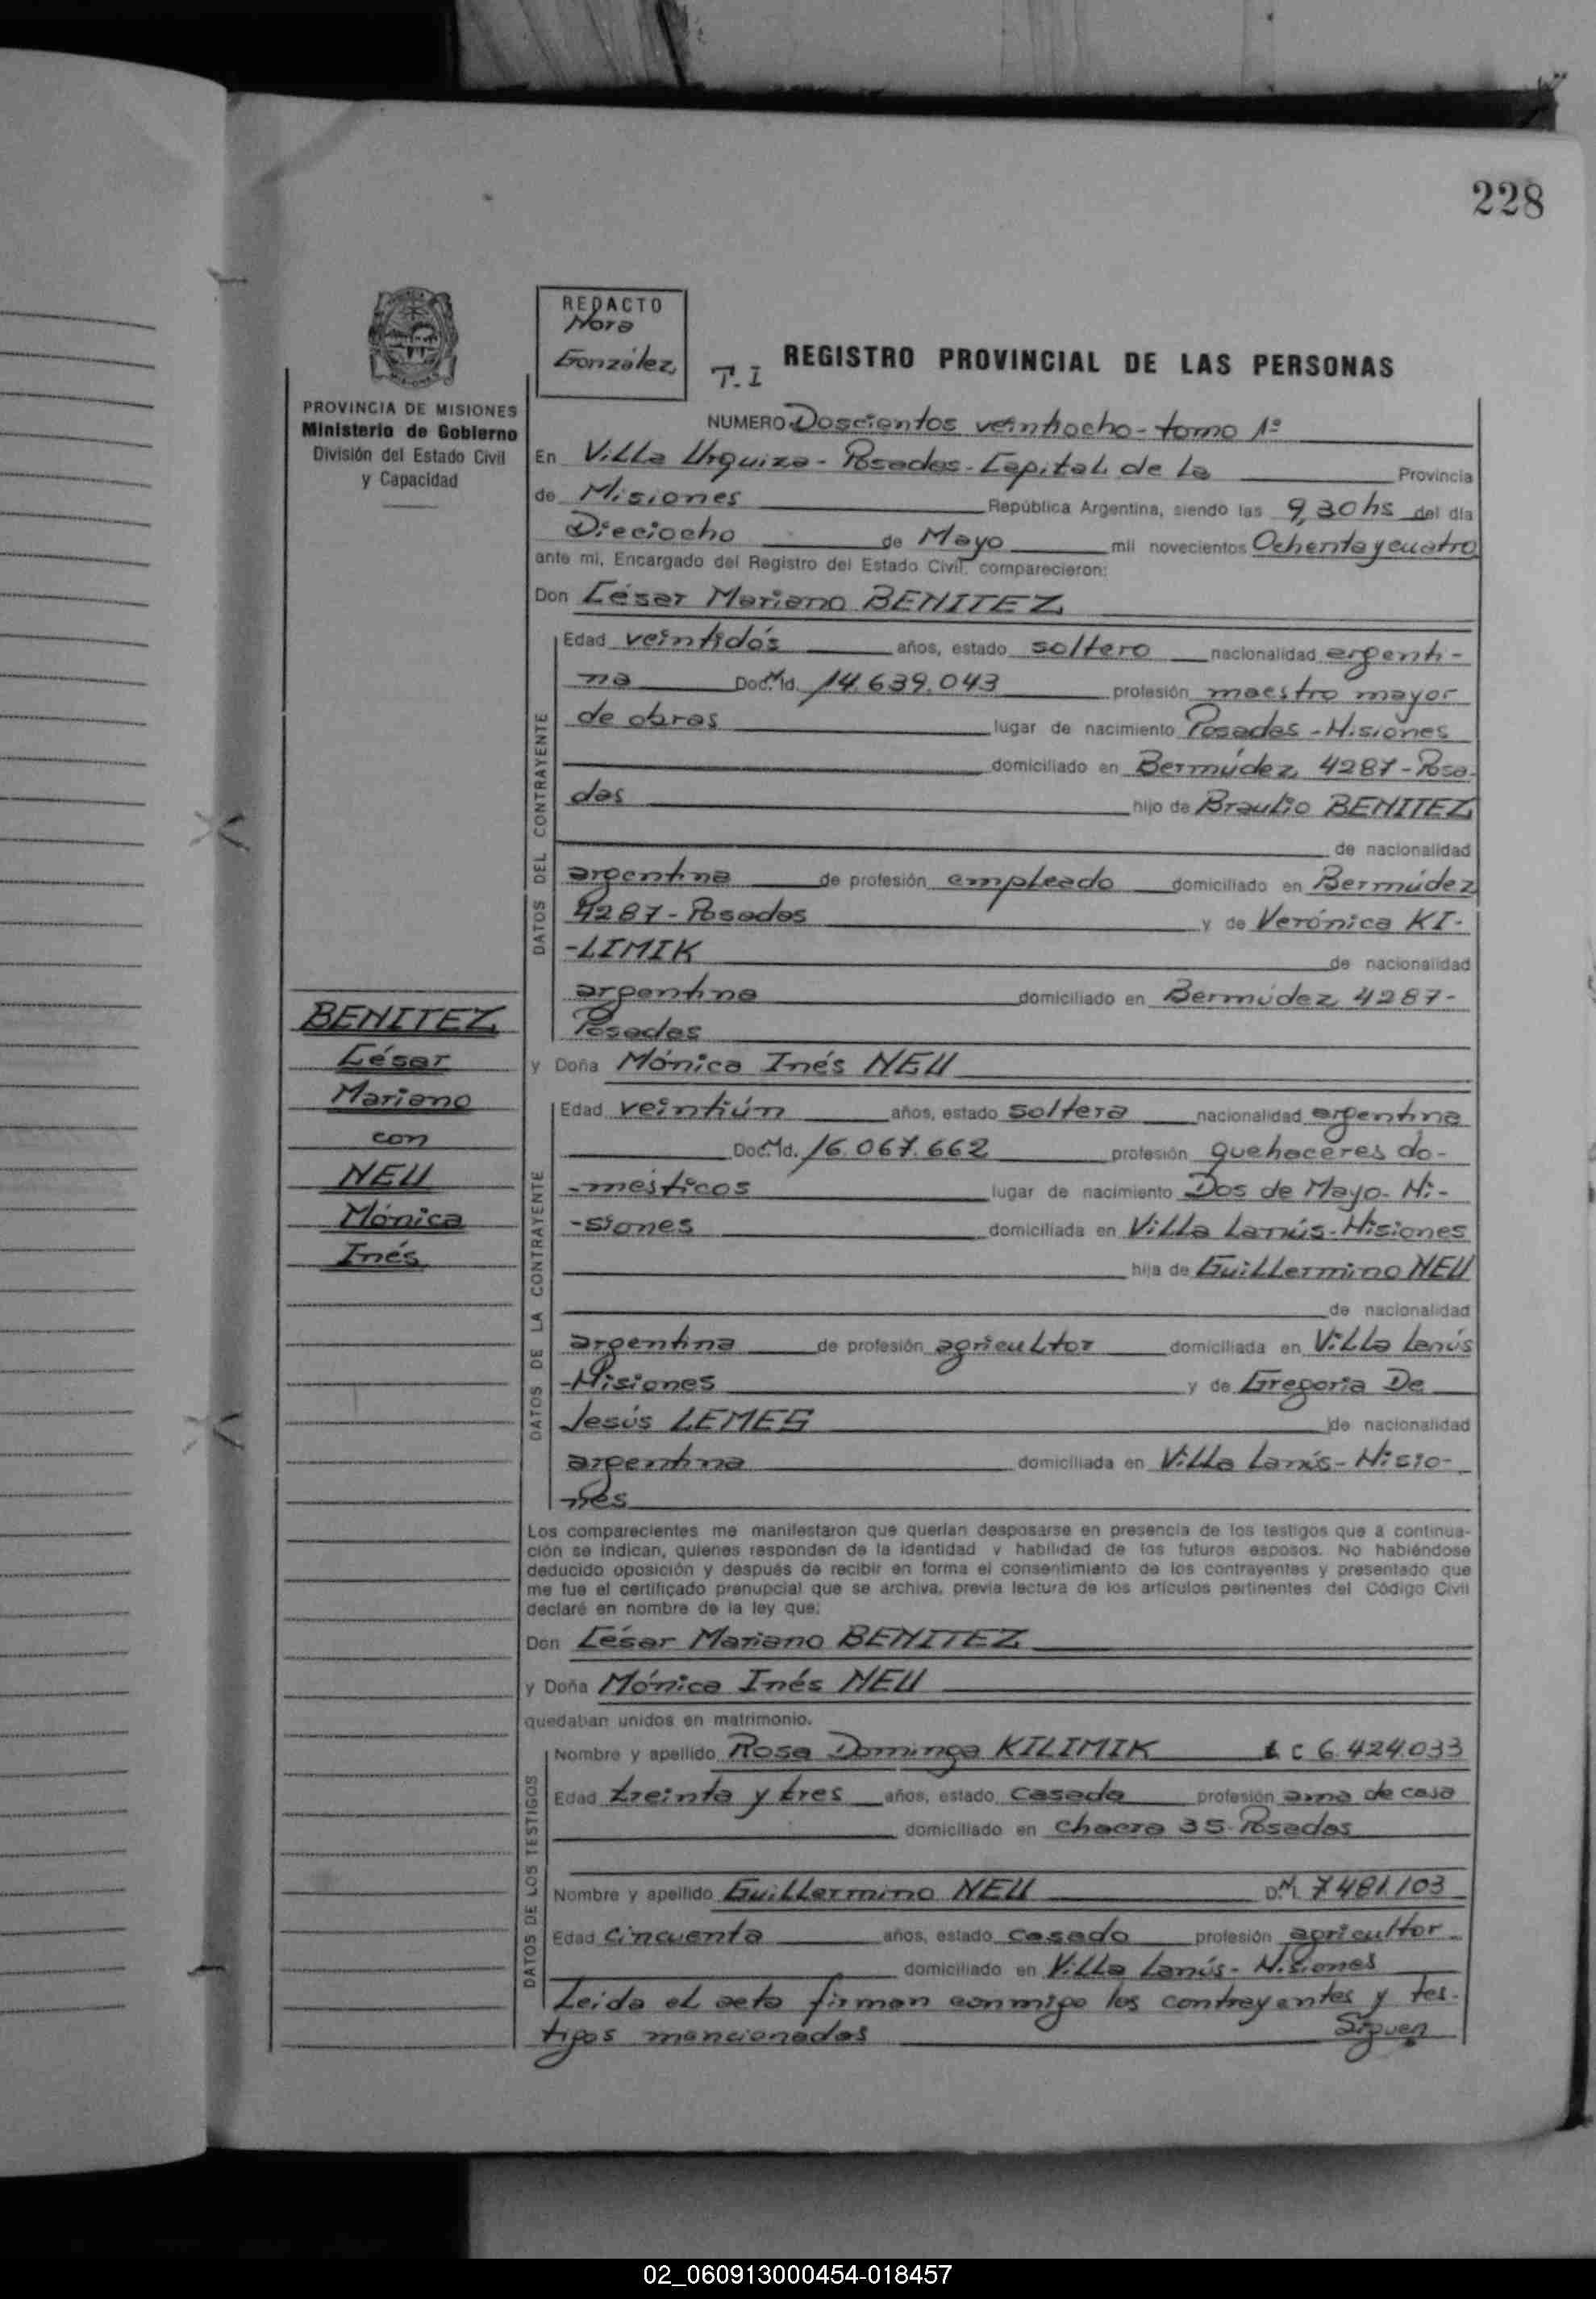 228
REDACTO
Nora
González
T. I
REGISTRO PROVINCIAL DE LAS PERSONAS
PROVINCIA DE MISIONES
Ministerio de Gobierno
División del Estado Civil
y Capacidad
NUMERO Doscientos veintiocho - tomo 1º
En Villa Urquiza - Posadas - Capital de la Provincia
de Misiones República Argentina, siendo las 9,30 hs del día
Dieciocho de Mayo mil novecientos Ochenta y cuatro
ante mi, Encargado del Registro del Estado Civil, comparecieron:
Don César Mariano BENITEZ
DATOS DEL CONTRAYENTE
Edad veintidós años, estado soltero nacionalidad argenti-
na Doc. Id. 14.639.043 profesión maestro mayor
de obras lugar de nacimiento Posadas - Misiones
domiciliado en Bermúdez 4287 - Posa-
das hijo de Braulio BENITEZ
de nacionalidad
argentina de profesión empleado domiciliado en Bermúdez
4287 - Posadas y de Verónica KI-
-LIMIK de nacionalidad
argentina domiciliado en Bermúdez 4287 -
Posadas
BENITEZ
César
Mariano
con
NEU
Mónica
Inés
y Doña Mónica Inés NEU
DATOS DE LA CONTRAYENTE
Edad veintiún años, estado soltera nacionalidad argentina
Doc. Id. 16.067.662 profesión quehaceres do-
-mésticos lugar de nacimiento Dos de Mayo - Mi-
-siones domiciliada en Villa Lanús - Misiones
hija de Guillermino NEU
de nacionalidad
argentina de profesión agricultor domiciliada en Villa Lanús
- Misiones y de Gregoria De
Jesús LEMES de nacionalidad
argentina domiciliada en Villa Lanús - Misio-
nes
Los comparecientes me manifestaron que querían desposarse en presencia de los testigos que a continua-
ción se indican, quienes responden de la identidad y habilidad de los futuros esposos. No habiéndose
deducido oposición y después de recibir en forma el consentimiento de los contrayentes y presentado que
me fue el certificado prenupcial que se archiva, previa lectura de los artículos pertinentes del Código Civil
declaré en nombre de la ley que:
Don César Mariano BENITEZ
y Doña Mónica Inés NEU
quedaban unidos en matrimonio.
DATOS DE LOS TESTIGOS
Nombre y apellido Rosa Dominga KILIMIK L C 6.424.033
Edad treinta y tres años, estado casada profesión ama de casa
domiciliado en chacra 35 - Posadas
Nombre y apellido Guillermino NEU D.N.I. 7.481.103
Edad cincuenta años, estado casado profesión agricultor
domiciliado en Villa Lanús - Misiones
Leida el acta firman conmigo los contrayentes y tes-
tigos mencionados Siguen
02_060913000454-018457